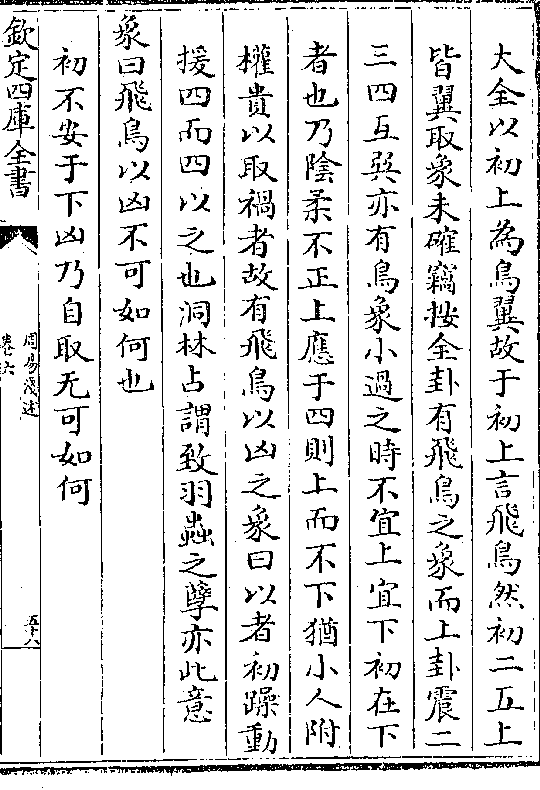 大全以初上為鳥翼故于初上言飛鳥然初二五上
皆翼取象未確竊按全卦有飛鳥之象而上卦震二
三四互巽亦有鳥象小過之時不宜上宜下初在下
者也乃陰柔不正上應于四則上而不下猶小人附
權貴以取禍者故有飛鳥以凶之象曰以者初躁動
援四而四以之也洞林占謂致羽蟲之孽亦此意
象曰飛鳥以凶不可如何也
初不安于下凶乃自取无可如何
欽定四庫全書
周易淺述
卷六
五十八